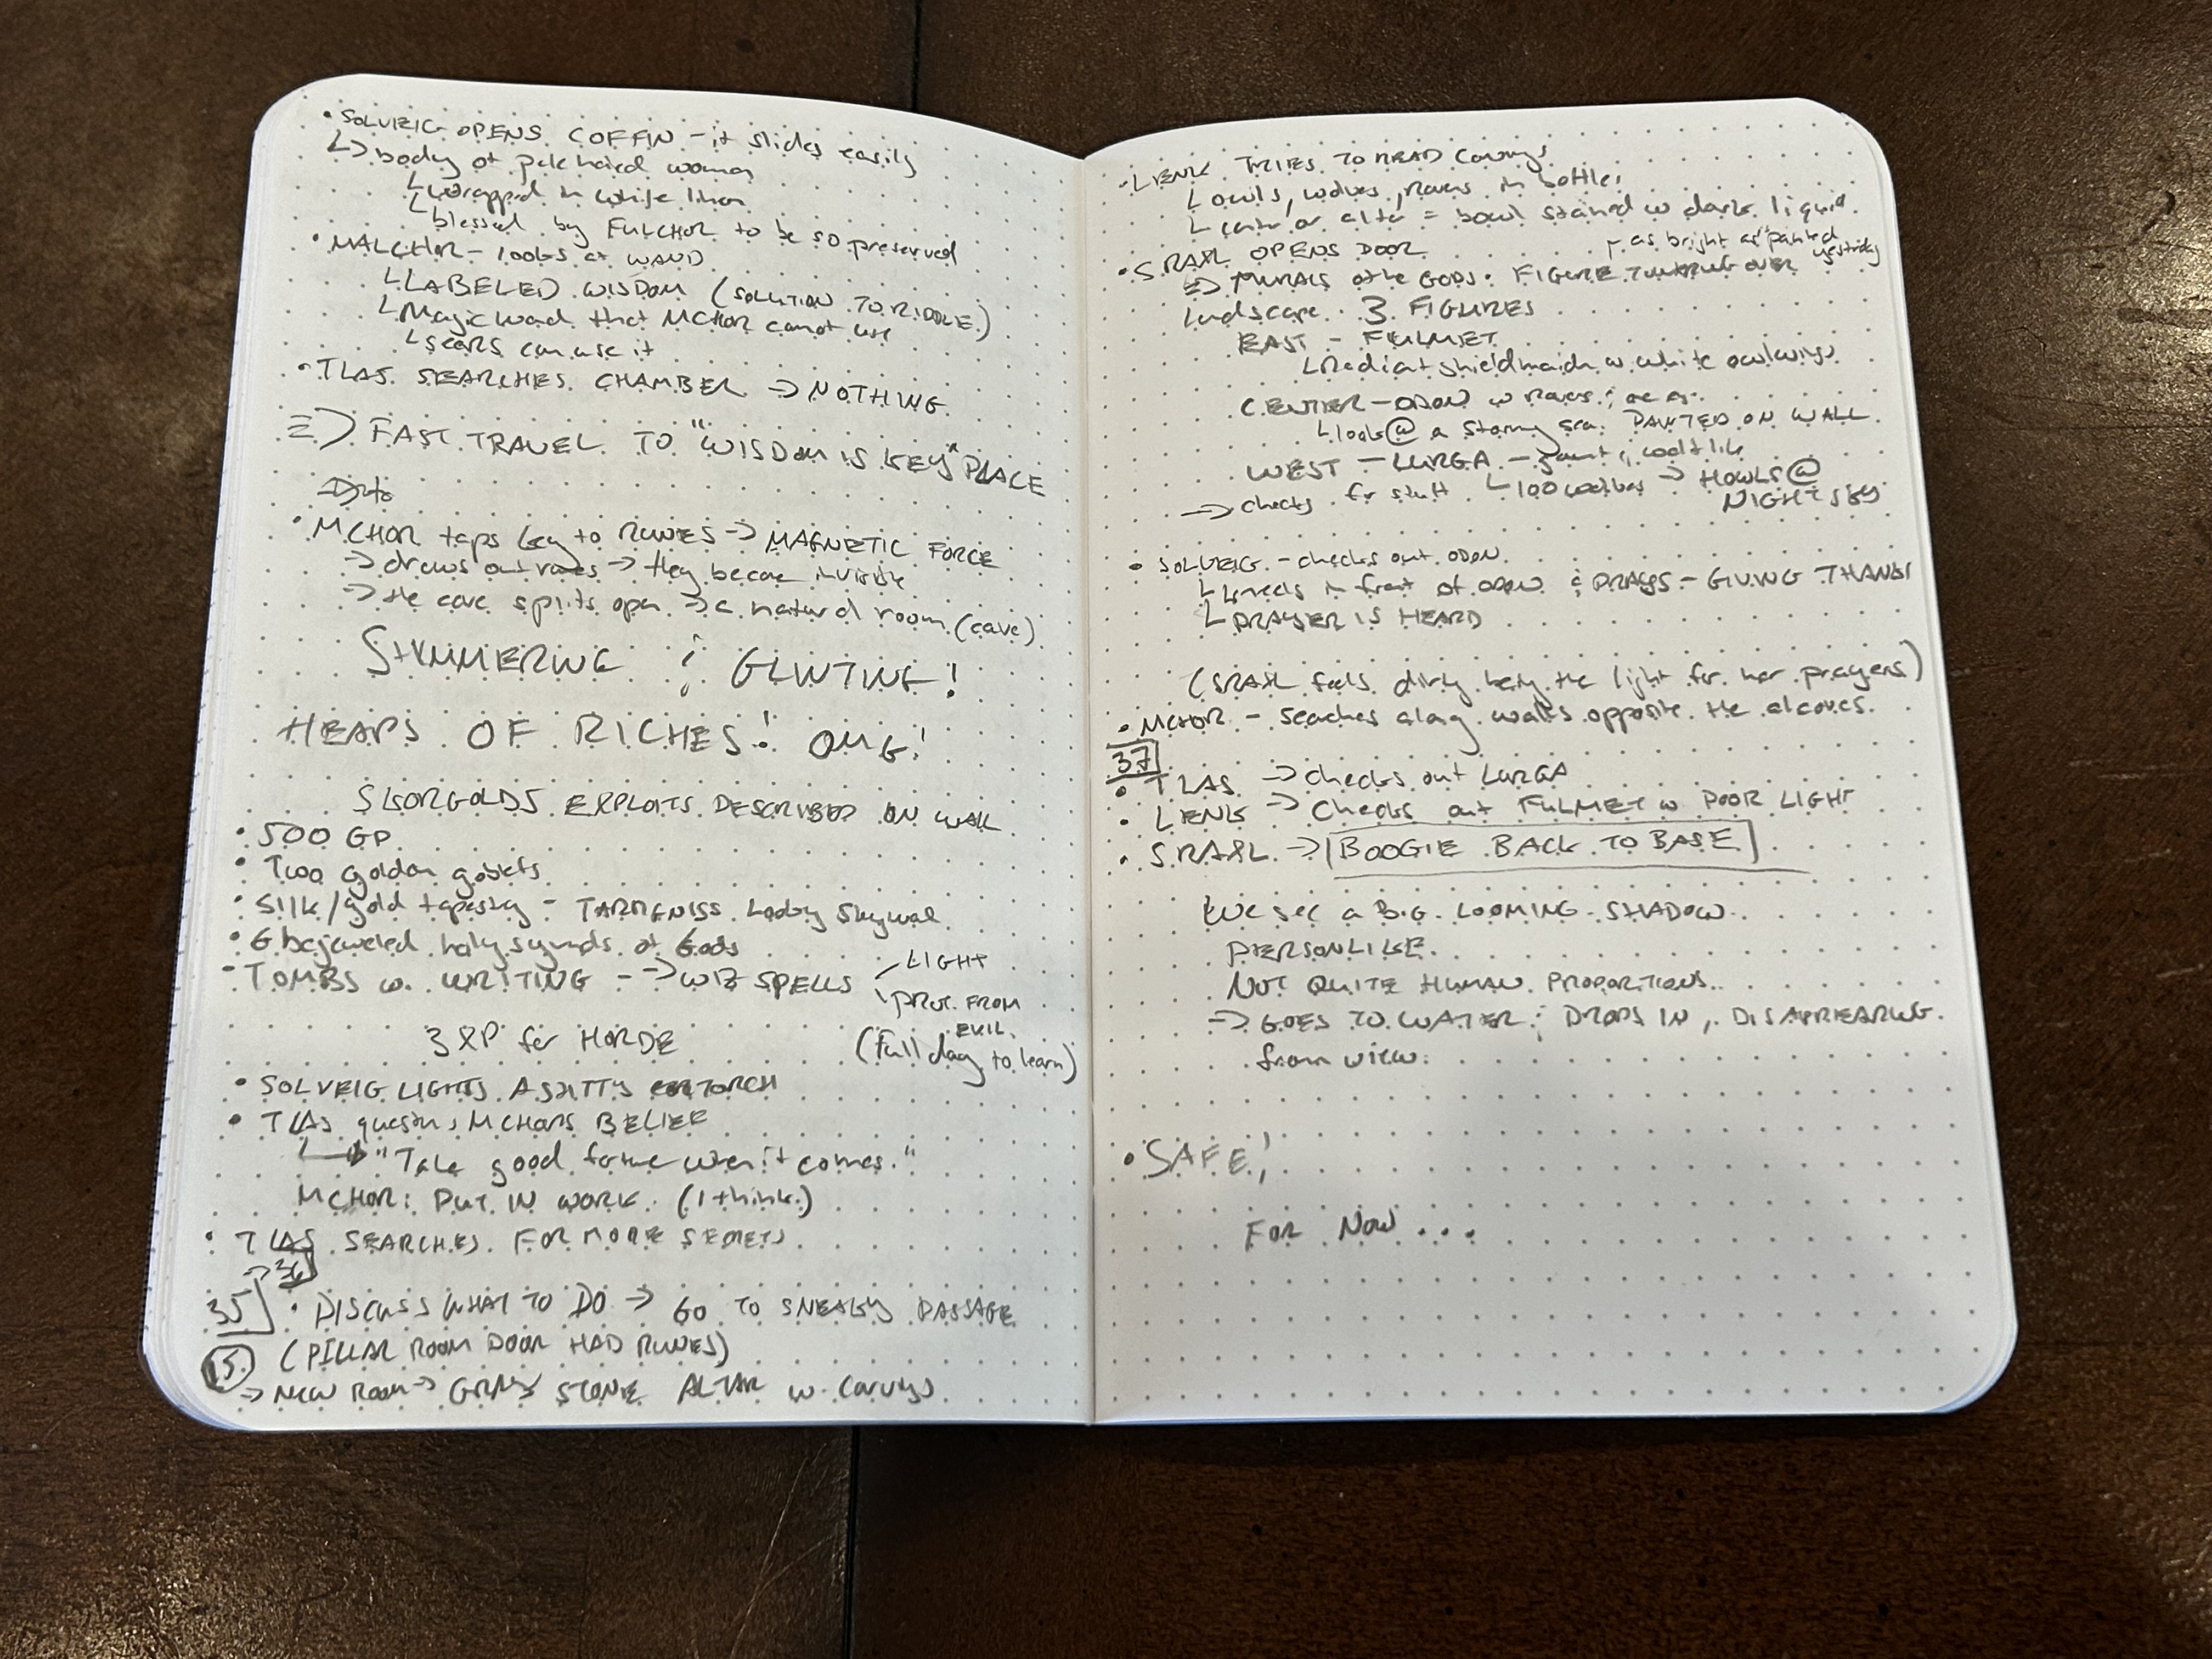 • SOLVEIG OPENS COFFIN - it slides easily
↳ body of pale haired woman
↳ wrapped in white linen
↳ blessed by FULCHOR to be so preserved
• MALCHOR - looks at WAND
↳ LABELED WISDOM (SOLUTION TO RIDDLE)
↳ Magic wand that MCHOR cannot use
↳ seers can use it
• TLAS SEARCHES CHAMBER → NOTHING
=> FAST TRAVEL TO "WISDOM IS KEY" PLACE
• MCHOR taps key to RUNES → MAGNETIC FORCE
→ draws out runes → they become invisible
→ the cave splits open → a natural room (cave)
SHIMMERING & GLINTING!
HEAPS OF RICHES! OMG!
SKORGOLDS EXPLOITS DESCRIBED ON WALL
• 500 GP
• Two golden goblets
• Silk/gold tapestry - TARMGNISS Lady
• 6 bejeweled holy symbols of Gods
- TOMBS w. WRITING - → WIZ SPELLS
LIGHT
PROT. FROM
EVIL
3 XP for HORDE
(full day to learn)
• SOLVEIG LIGHTS A SHITTY TORCH
• TLAS questions MCHORS BELIEF
↳ "Take good fortune when it comes."
MCHOR: PUT IN WORK (I think)
• TLAS SEARCHES FOR MORE SECRETS
→ 36
35 • DISCUSS WHAT TO DO → GO TO SNEAKY PASSAGE
(PILLAR ROOM DOOR HAD RUNES)
15.
→ NEW ROOM → GRAY STONE ALTAR w. Carvings
• LIENK TRIES TO READ Carvings
↳ owls, wolves, ravens in battle;
↳ center of altar = bowl stained w dark liquid
• SRAXL OPENS DOOR
as bright as "painted
yesterday
=> MURALS of the GODS: FIGURE TOWERING OVER
landscape. 3 FIGURES
EAST - FULMET
↳ Radiant shieldmaiden w. white owl wings
CENTER - ODON w Ravens;
↳ looks @ a stormy sea. PAINTED ON WALL
WEST - LURGA - gaunt & wolflike
↳ 100 wolves → HOWLS @
NIGHT SKY
→ checks for stuff
• SOLVEIG - checks out ODON
↳ kneels in front of ODON & PRAYS - GIVING THANKS
↳ PRAYER IS HEARD
(SRAXL feels dirty being the light for her prayers)
• MCHOR - Seaches along walls opposite the alcoves.
37
• TLAS → checks out LURGA
• LIENK → Checks out FULMET w POOR LIGHT
• SRAXL → BOOGIE BACK TO BASE
We see a BIG LOOMING SHADOW
PERSONLIKE.
NOT QUITE HUMAN PROPORTIONS..
→ GOES TO WATER & DROPS IN, DISAPPEARING
from view.
• SAFE!
FOR NOW...